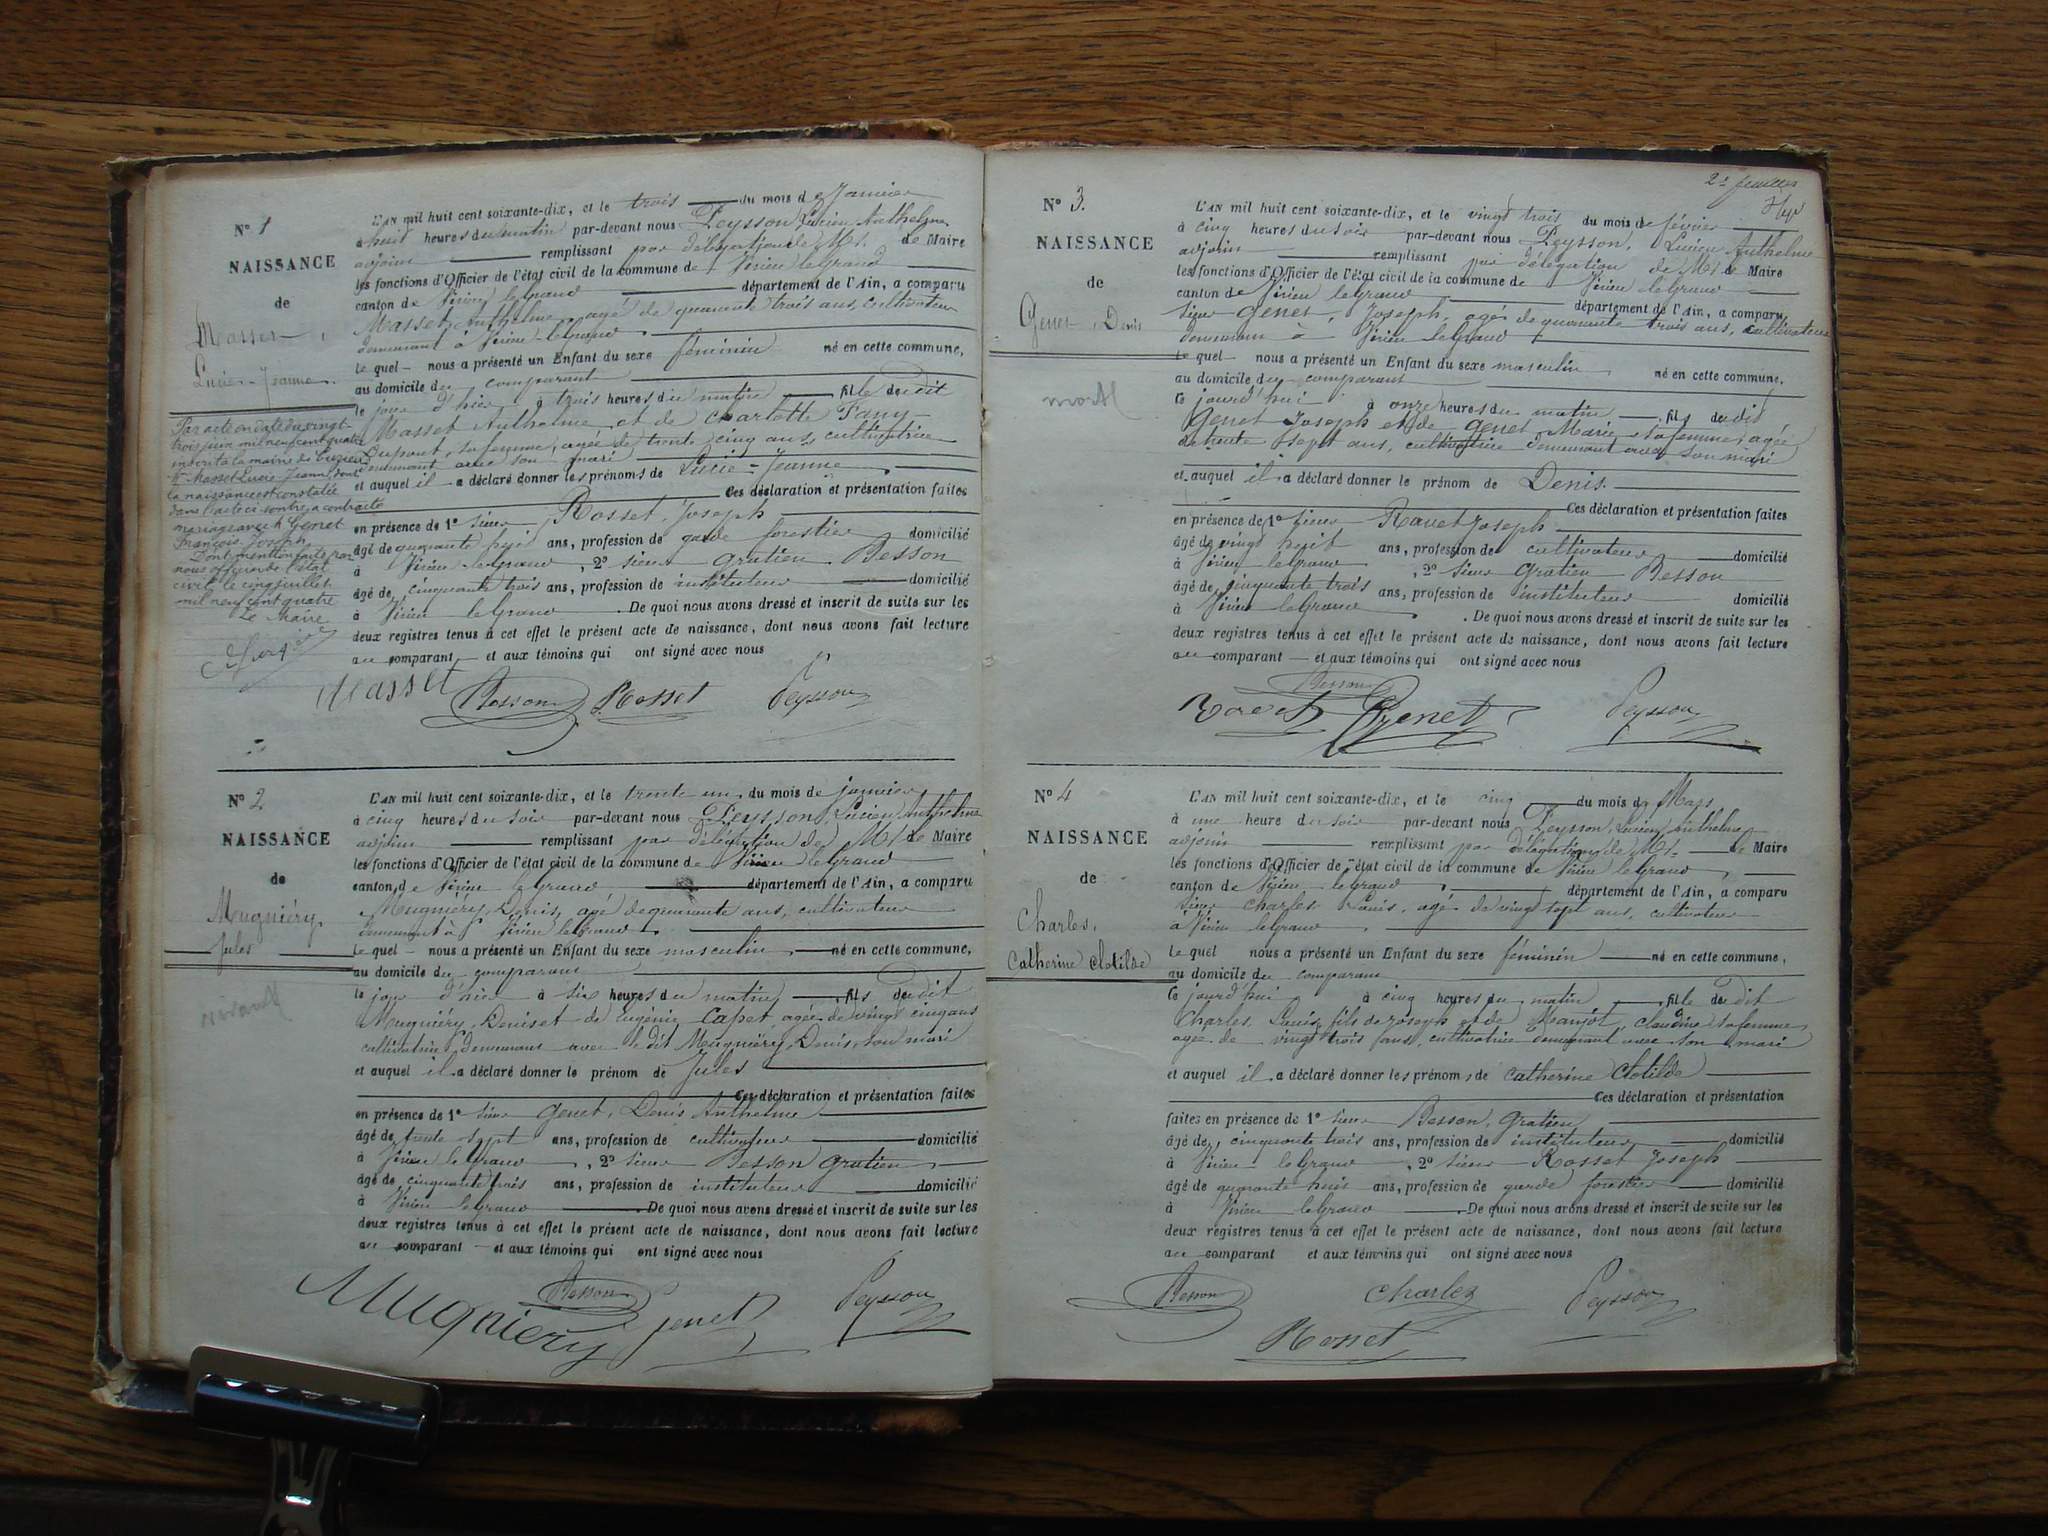 N° 1
NAISSANCE
de
Masset
Lucie-Jeanne
Par acte en date du vingt-
trois juin mil neuf cent quatre
inscrit à la mairie de
Masset Lucie Jeanne, dont
la naissance est constatée
dans l'acte ci-contre, a contracté
mariage avec Genet
François Joseph
Dont mention faite par
nous officier de l'état
civil le cinq juillet
mil neuf cent quatre
Le Maire
L'AN mil huit cent soixante-dix, et le trois du mois de Janvier
à huit heures du matin par-devant nous Peysson Lucien Anthelme
adjoint remplissant par délégation de Mr. le Maire
les fonctions d'Officier de l'état civil de la commune de Virieu le Grand
canton de Virieu le Grand département de l'Ain, a comparu
Masset Anthelme, agé de quarante trois ans, cultivateur
demeurant à Virieu-le-grand
Le quel nous a présenté un Enfant du sexe féminin né en cette commune,
au domicile du comparant
le jour d'hier à trois heures du matin fille du dit
Masset Anthelme et de Charlotte Fany
Dupont, sa femme, agée de trente cinq ans, cultivatrice
demeurant avec son mari
et auquel il a déclaré donner les prénoms de Lucie-Jeanne
Ces déclaration et présentation faites
en présence de 1° sieur Rosset, Joseph
âgé de quarante huit ans, profession de garde forestier domicilié
à Virieu le Grand, 2° sieur Gratien Besson
âgé de cinquante trois ans, profession de instituteur domicilié
à Virieu le Grand. De quoi nous avons dressé et inscrit de suite sur les
deux registres tenus à cet effet le présent acte de naissance, dont nous avons fait lecture
au comparant et aux témoins qui ont signé avec nous
Masset Besson Rosset Peysson
N° 2
NAISSANCE
de
Mugniéry,
Jules
L'AN mil huit cent soixante-dix, et le trente un du mois de janvier
à cinq heures du soir par-devant nous Peysson, Lucien Anthelme
adjoint remplissant par délégation de Mr le Maire
les fonctions d'Officier de l'état civil de la commune de Virieu le Grand
canton de Virieu le Grand département de l'Ain, a comparu
Mugniéry, Denis, agé de quarante ans, cultivateur
demeurant à Virieu le Grand
Le quel nous a présenté un Enfant du sexe masculin né en cette commune,
au domicile du comparant
le jour d'hier à six heures du matin, fils du dit
Mugniéry, Denis et de Eugénie Capet agée de vingt cinq ans
cultivatrice, demeurant avec le dit Mugniéry, Denis, son mari
et auquel il a déclaré donner le prénom de Jules
Ces déclaration et présentation faites
en présence de 1° sieur Genet, Denis Anthelme
âgé de trente sept ans, profession de cultivateur domicilié
à Virieu le Grand, 2° sieur Besson Gratien
âgé de cinquante trois ans, profession de instituteur domicilié
à Virieu le Grand. De quoi nous avons dressé et inscrit de suite sur les
deux registres tenus à cet effet le présent acte de naissance, dont nous avons fait lecture
au comparant et aux témoins qui ont signé avec nous
Mugniery Besson Genet Peysson
2e feuillet
N° 3.
NAISSANCE
de
Genet, Denis
mort
L'AN mil huit cent soixante-dix, et le vingt trois du mois de février
à cinq heures du soir par-devant nous Peysson, Lucien Anthelme
adjoint remplissant par délégation de Mr le Maire
les fonctions d'Officier de l'état civil de la commune de Virieu le Grand
canton de Virieu le Grand département de l'Ain, a comparu
Sieur Genet, Joseph, agé de quarante trois ans, cultivateur
demeurant à Virieu le Grand
Le quel nous a présenté un Enfant du sexe masculin né en cette commune,
au domicile du comparant
ce jourd'hui à onze heures du matin fils du dit
Genet Joseph et de Genet Marie, sa femme, agée
de trente sept ans, cultivatrice demeurant avec son mari
et auquel il a déclaré donner le prénom de Denis
Ces déclaration et présentation faites
en présence de 1° sieur Ravet Joseph
âgé de vingt huit ans, profession de cultivateur domicilié
à Virieu le Grand, 2° sieur Gratien Besson
âgé de cinquante trois ans, profession de instituteur domicilié
à Virieu le Grand. De quoi nous avons dressé et inscrit de suite sur les
deux registres tenus à cet effet le présent acte de naissance, dont nous avons fait lecture
au comparant et aux témoins qui ont signé avec nous
Besson
Ravet Genet Peysson
N° 4
NAISSANCE
de
Charles,
Catherine Clotilde
L'AN mil huit cent soixante-dix, et le cinq du mois de Mars
à une heure du soir par-devant nous Peysson, Lucien Anthelme
adjoint remplissant par délégation de Mr. le Maire
les fonctions d'Officier de l'état civil de la commune de Virieu le Grand,
canton de Virieu le Grand, département de l'Ain, a comparu
Sieur Charles Louis, agé de vingt sept ans, cultivateur
à Virieu le Grand.
Le quel nous a présenté un Enfant du sexe féminin né en cette commune,
au domicile du comparant
ce jourd'hui à cinq heures du matin fille du dit
Charles, Louis, fils de Joseph et de Manjot, Claudine sa femme
agée de vingt trois ans, cultivatrice demeurant avec son mari
et auquel il a déclaré donner les prénoms de Catherine Clotilde
Ces déclaration et présentation
faites en présence de 1° sieur Besson, Gratien
âgé de cinquante trois ans, profession de instituteur domicilié
à Virieu le Grand, 2° sieur Rosset Joseph
âgé de quarante huit ans, profession de garde forestier domicilié
à Virieu le Grand. De quoi nous avons dressé et inscrit de suite sur les
deux registres tenus à cet effet le présent acte de naissance, dont nous avons fait lecture
au comparant et aux témoins qui ont signé avec nous
Besson Charles Peysson
Rosset